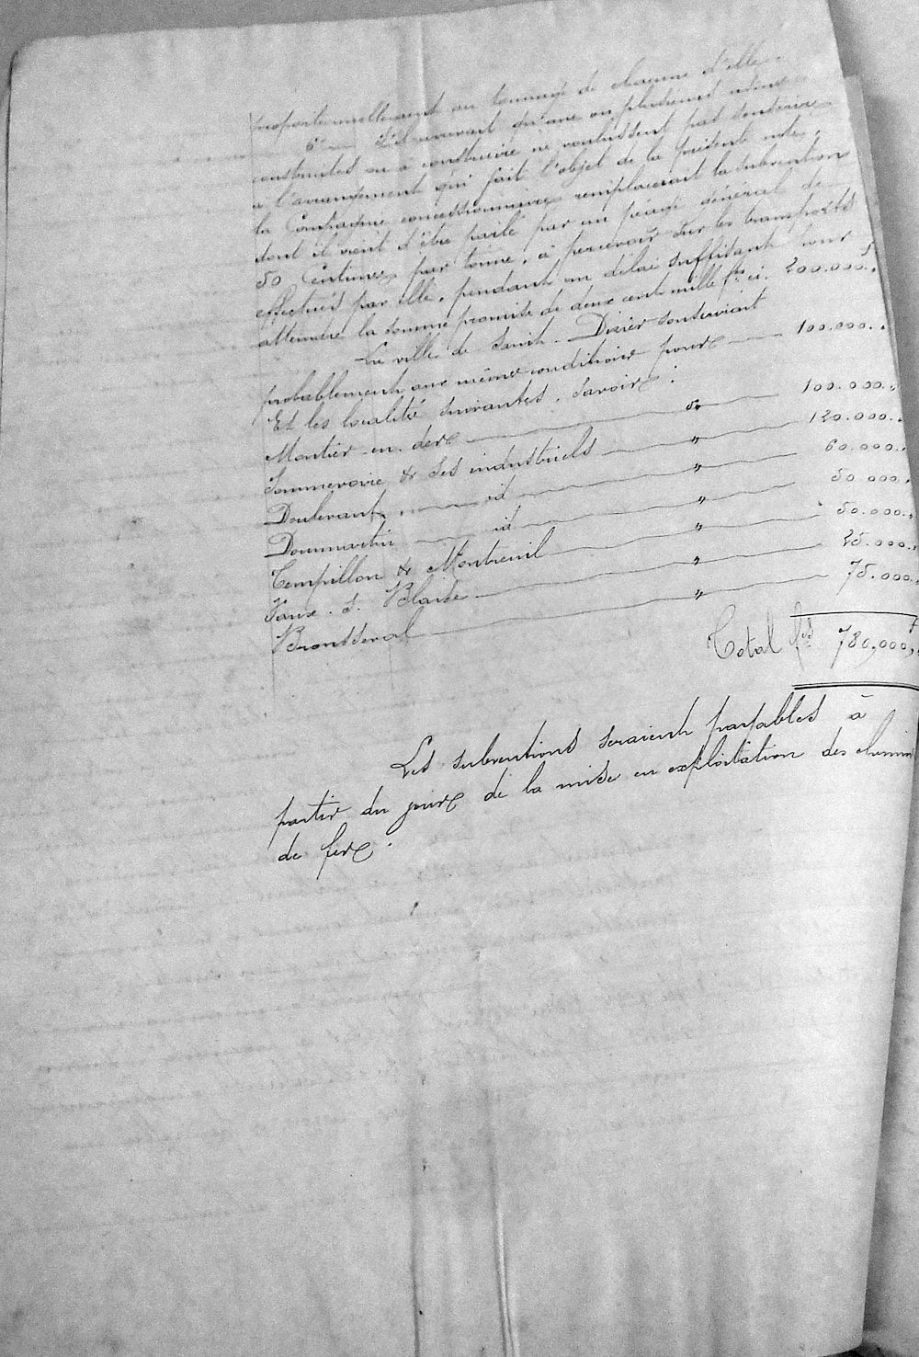 proportionnellement au tonnage de chacune d'elle.
6° S'il arrivait qu'une ou plusieurs usines
construites ou à construire ne voulussent pas souscrire
à l'arrangement qui fait l'objet de la présente note,
la Compagnie concessionnaire remplacerait la subvention
dont il vient d'être parlé par un péage général de
50 Centimes par tonne, à percevoir sur les transports
effectués par elle, pendant un délai suffisant pour
atteindre la somme promise de deux cent mille frs ci. 200.000.f
La ville de Saint-Dizier souscrirait
probablement aux mêmes conditions pour 100.000..
Et les localités suivantes, savoir :
Montier-en-der do 100.000.,
Sommevoire & ses industriels " 120.000..
Doulevant id " 60.000..
Dommartin id " 50.000.
Tempillon & Montreuil " 50.000.,
Vaux-s.-Blaise " 25.000.,
Brousseval " 75.000.
Total frs 780,000,f
Les subventions seraient payables à
partir du jour de la mise en exploitation des chemins
de fer.